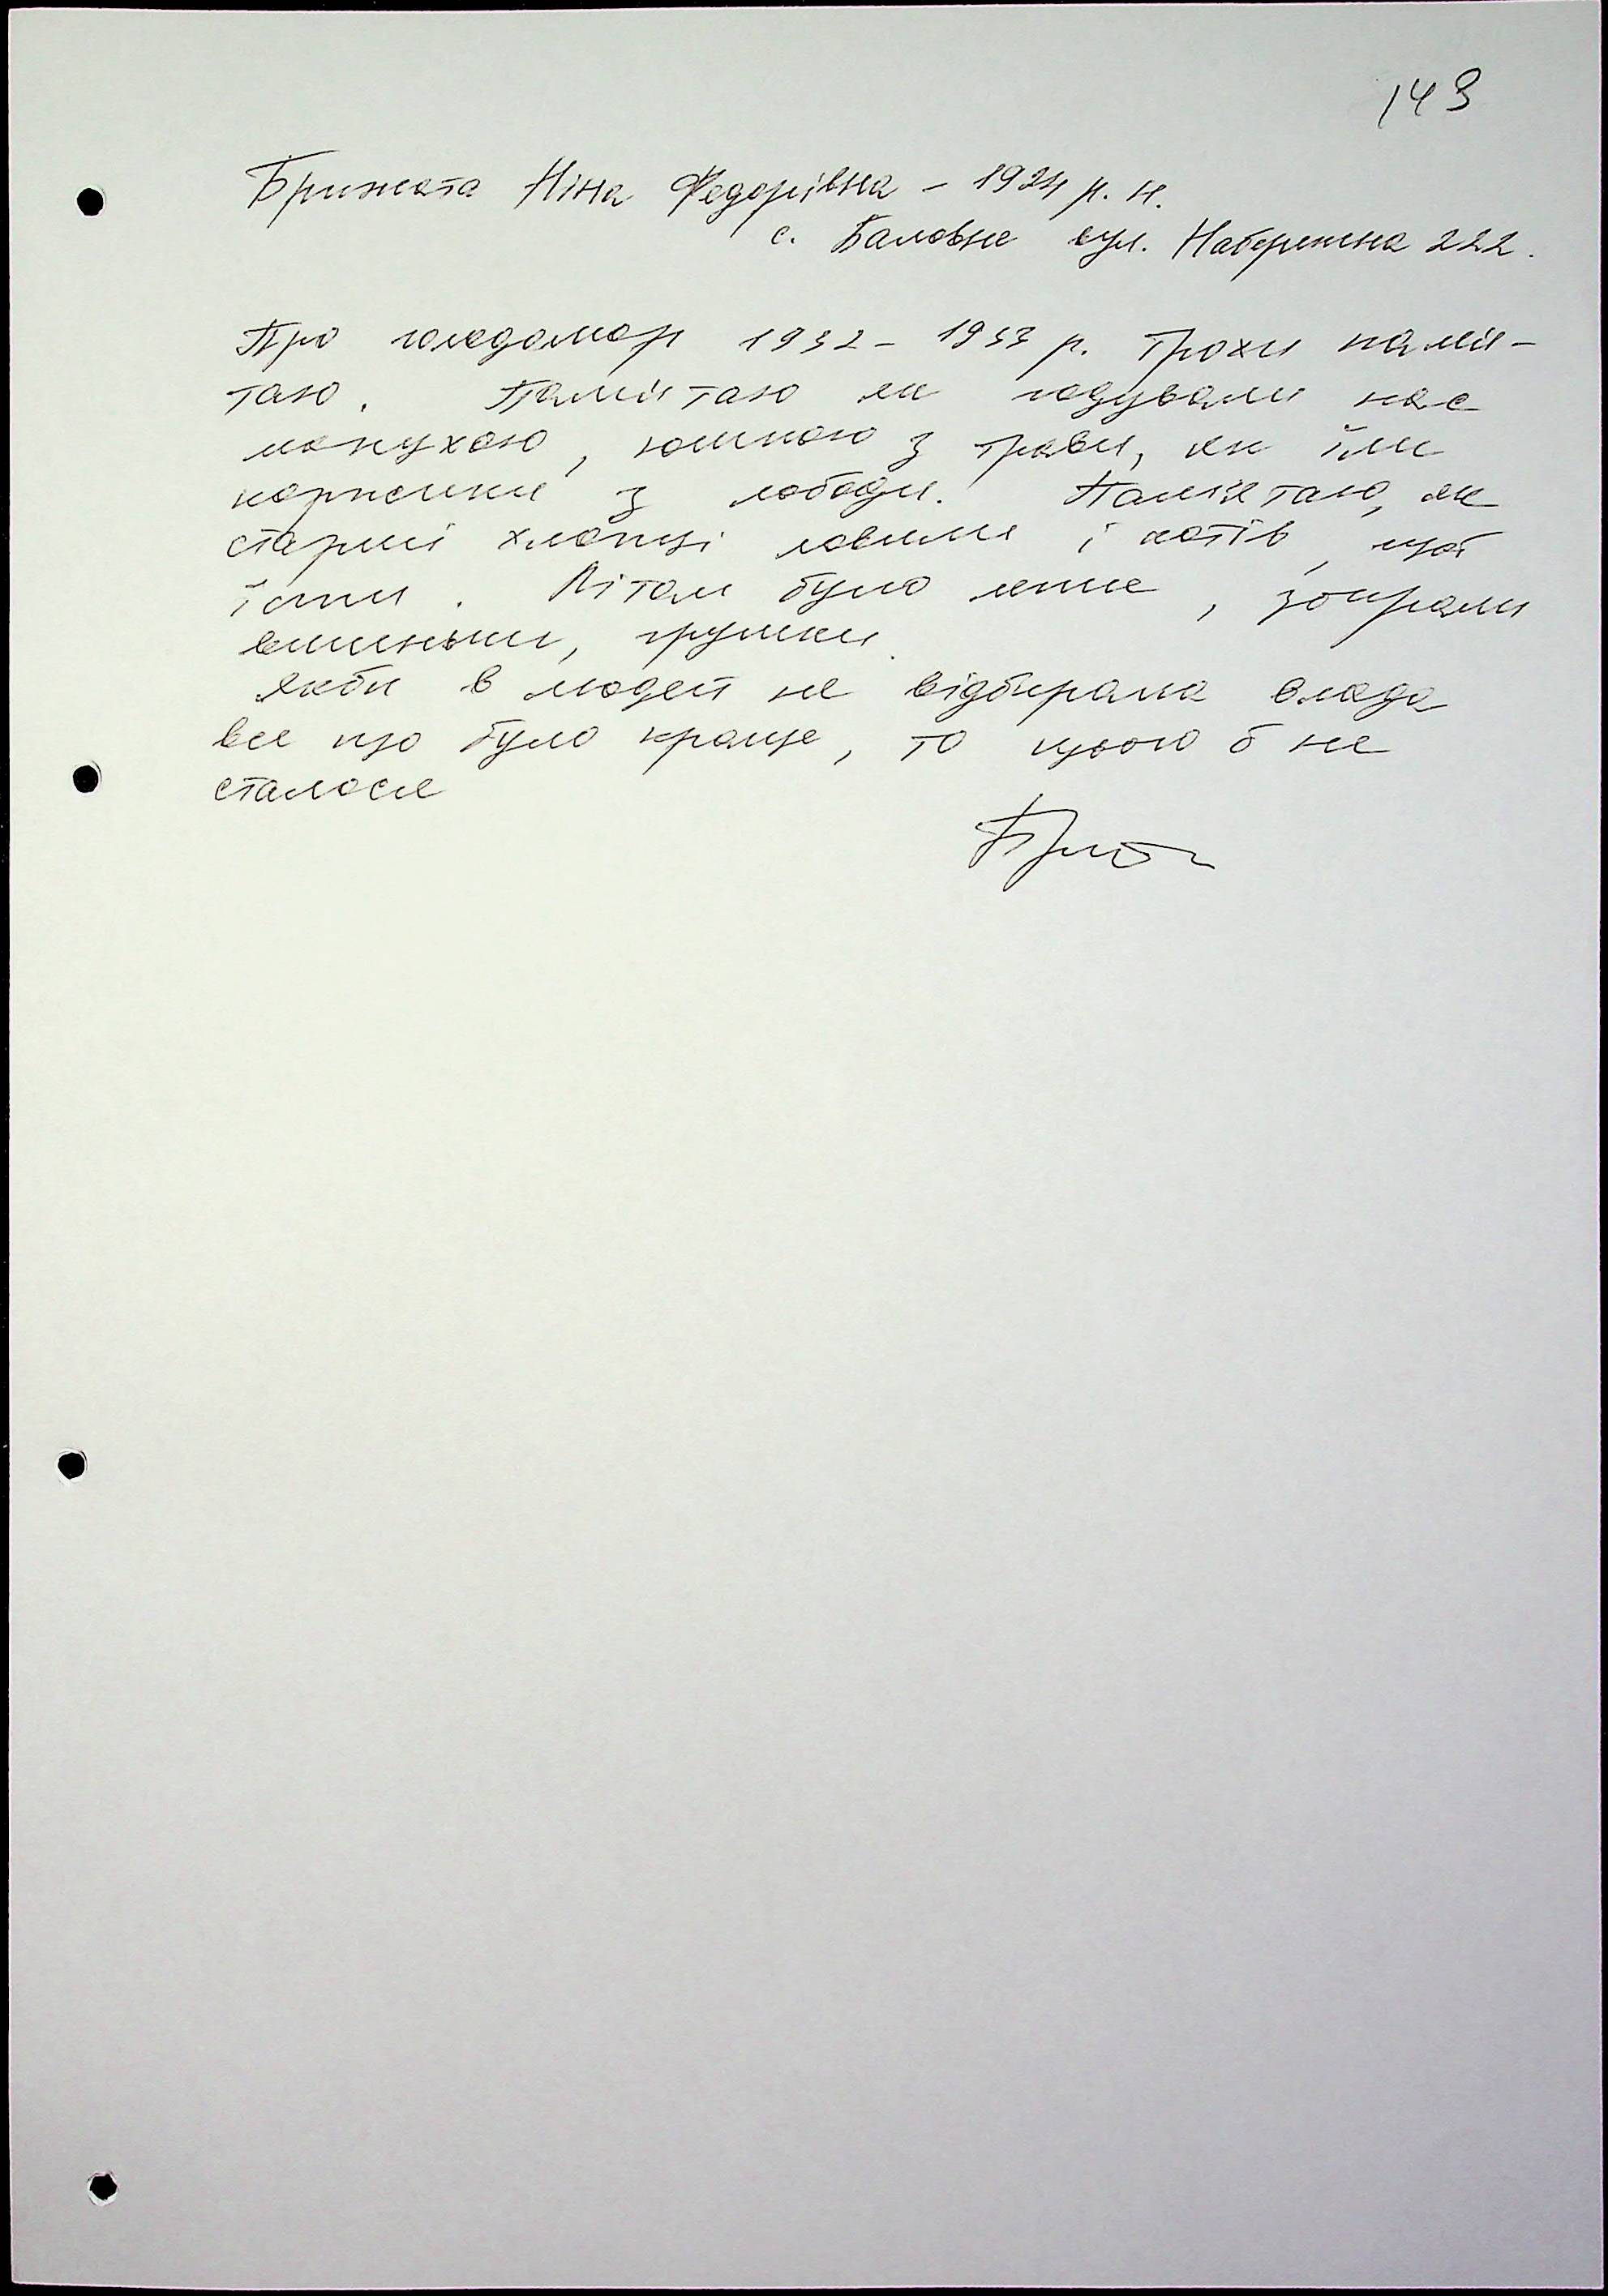 143
Брижата Ніна Федорівна – 1924 р. н.
с. Баловне вул. Набережна 222.
Про голодомор 1932 – 1933 р. трохи памя-
таю. Памятаю як годували нас
макухою, юшкою з трави, як їли
коржики з лободи. Памятаю, як
старші хлопці ловили і котів, щоб
їсти. Літом було легше, збирали
вишеньки, грушки.
Якби в людей не відбирала влада
все що було краще, то цього б не
сталося